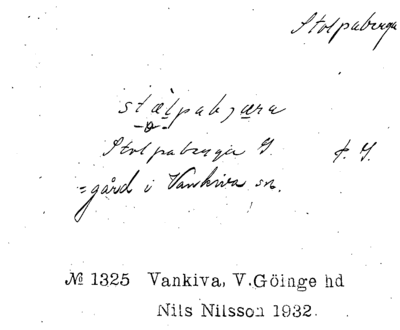 Stolpaberga
stælpabjæra
-o-
Stolpaberga G. f. G.
= gård i Vankiva sn.
№ 1325 Vankiva, V. Göinge hd
Nils Nilsson 1932.